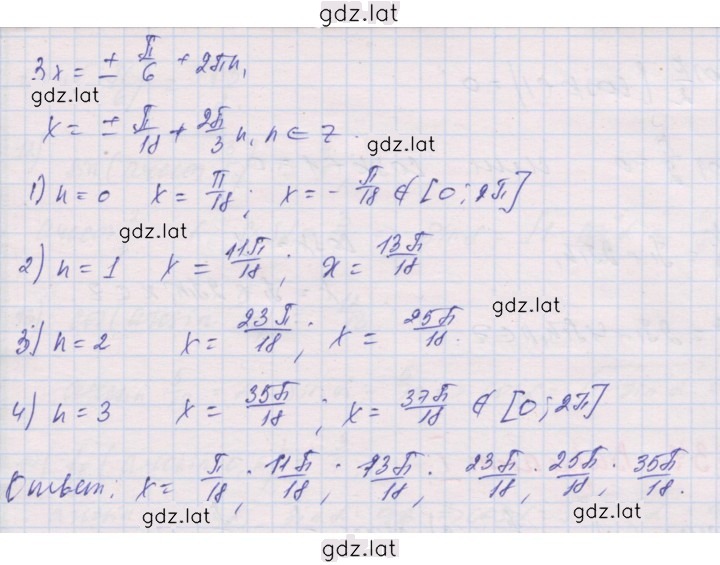 gdz.lat
3x = ± π/6 + 2πn,
gdz.lat
x = ± π/18 + 2π/3 n, n ∈ Z
1) n = 0 x = π/18; x = - π/18 ∉ [0; 2π]
gdz.lat
2) n = 1 x = 11π/18; x = 13π/18
gdz.lat
3) n = 2 x = 23π/18; x = 25π/18.
4) n = 3 x = 35π/18; x = 37π/18 ∉ [0; 2π]
Ответ: x = π/18; 11π/18; 13π/18; 23π/18; 25π/18; 35π/18.
gdz.lat gdz.lat
gdz.lat